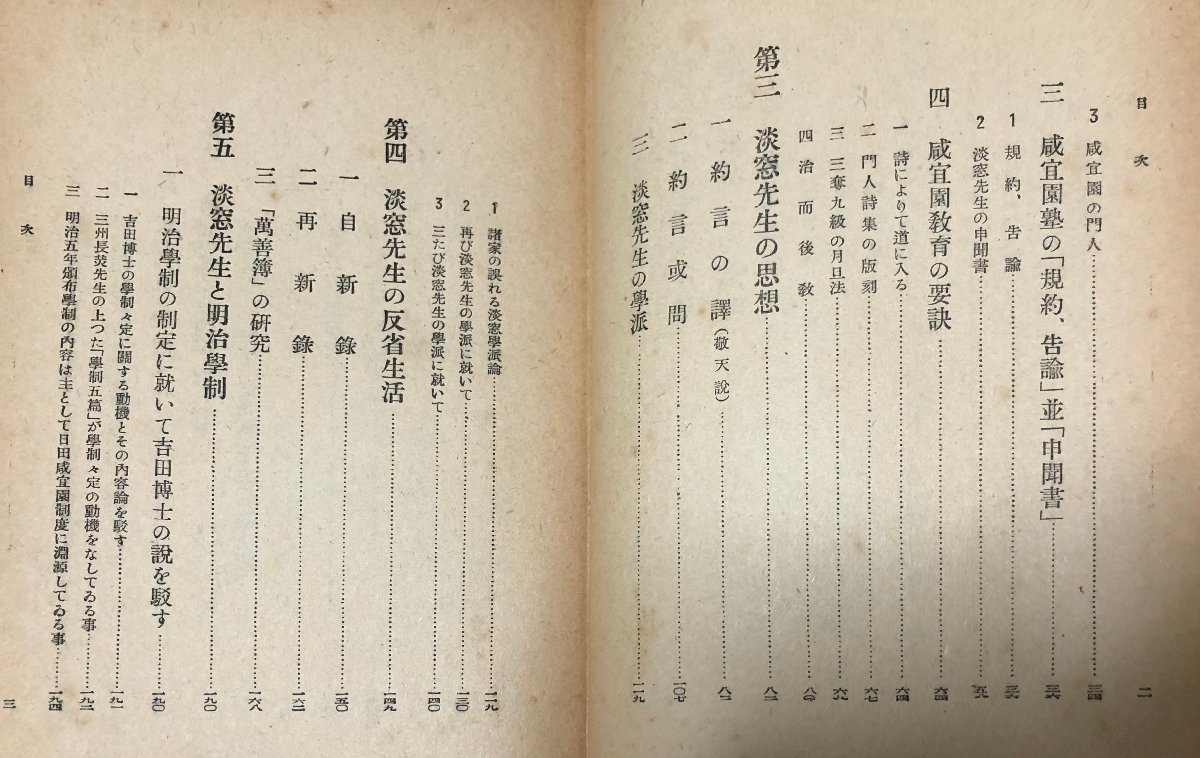 目次
二
3 咸宜園の門人……三四
三 咸宜園塾の「規約、告諭」並「申聞書」……三六
1 規約、告諭……三六
2 淡窓先生の申聞書……五六
四 咸宜園教育の要訣……六四
一 詩によりて道に入る……六四
二 門人詩集の版刻……六七
三 三奪九級の月旦法……六九
四 治而後敎……八〇
第三 淡窓先生の思想……八二
一 約言の譯(敬天說)……八二
二 約言或問……一〇七
三 淡窓先生の學派……一二九
1 諸家の誤れる淡窓學派論……一二九
2 再び淡窓先生の學派に就いて……一三〇
3 三たび淡窓先生の學派に就いて……一四〇
第四 淡窓先生の反省生活……一四九
一 自新錄……一五〇
二 再新錄……一六二
三 「萬善簿」の硏究……一六八
第五 淡窓先生と明治學制……一九〇
一 明治學制の制定に就いて吉田博士の說を駁す……一九〇
一 吉田博士の學制々定に關する動機とその內容論を駁す……一九一
二 三州長炗先生の上つた「學制五篇」が學制々定の動機をなしてゐる事……一九二
三 明治五年頒布學制の內容は主として日田咸宜園制度に淵源してゐる事……一九四
目次
三